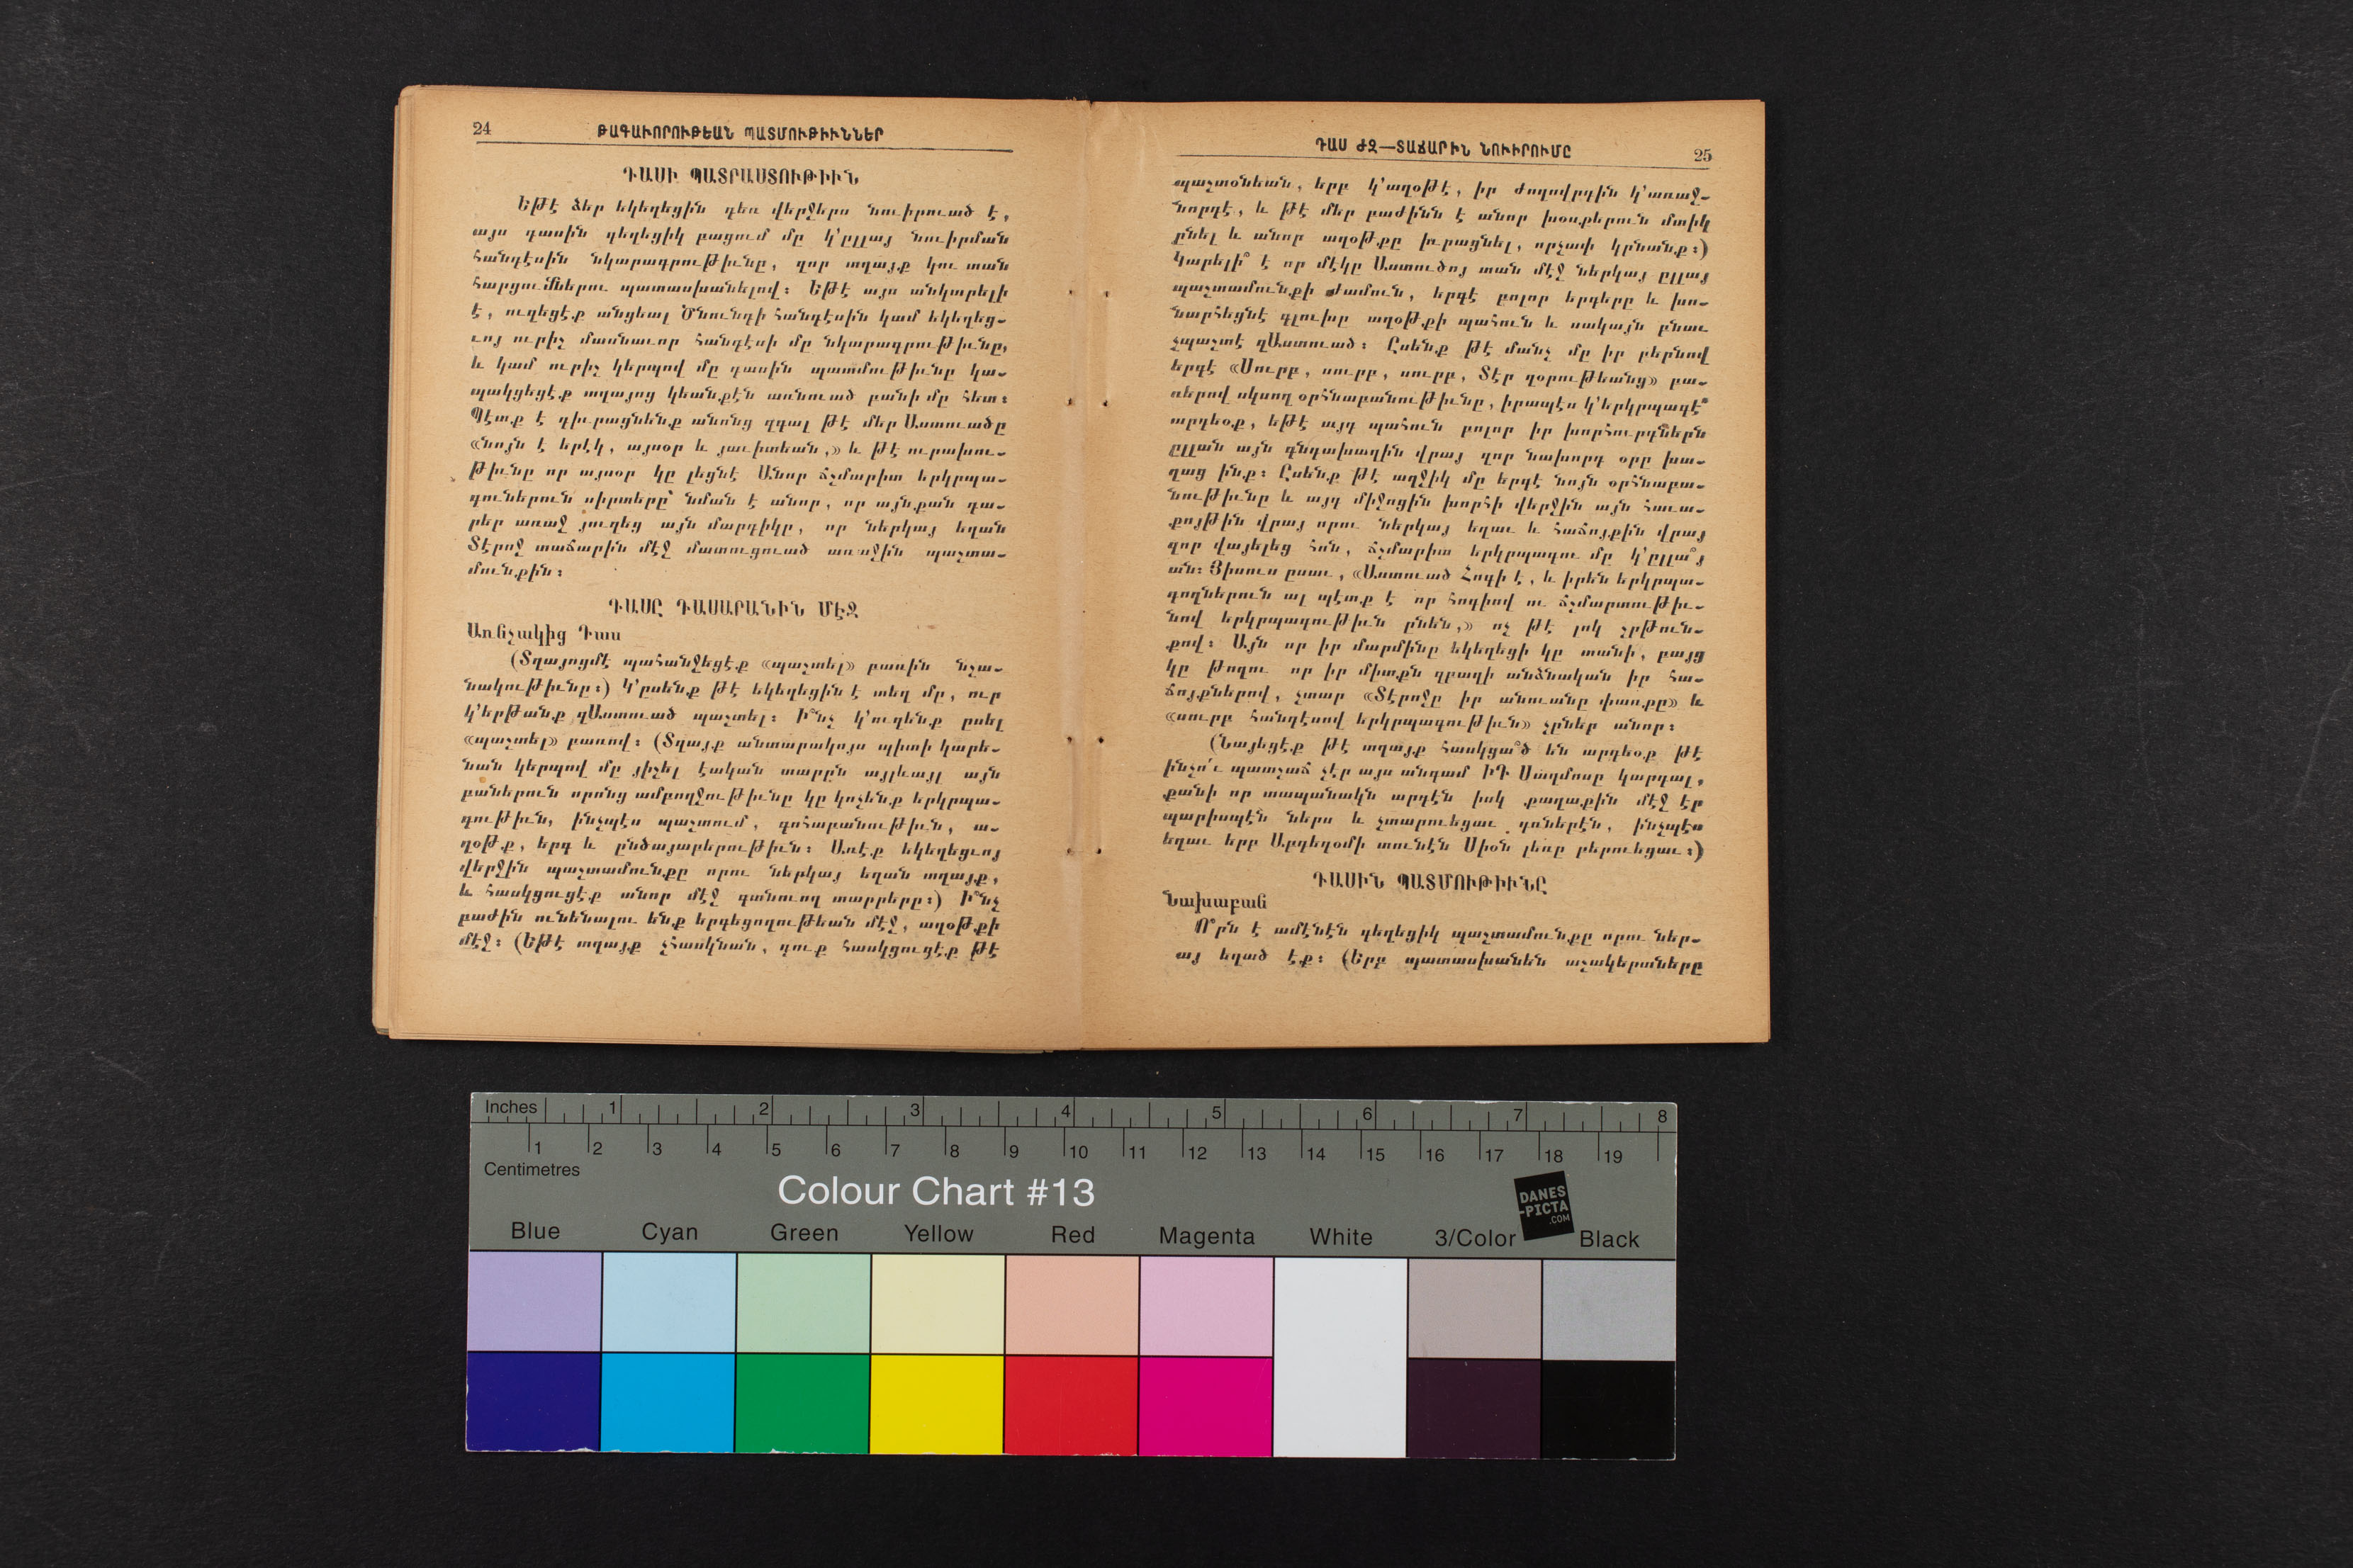 24
ԹԱԳԱՒՈՐՈՒԹԵԱՆ ՊԱՏՄՈՒԹԻՒՆՆԵՐ
ԴԱՍԻ ՊԱՏՐԱՍՏՈՒԹԻՒՆ
Եթէ ձեր եկեղեցին դեռ վերջերս նուիրուած է,
այս դասին գեղեցիկ բացում մը կ՚ըլլայ նուիրման
հանդէսին նկարագրութիւնը, զոր տղայք կու տան
հարցումներու պատասխանելով։ Եթէ այս անկարելի
է, ուղեցէք անցեալ Ծնունդի հանդէսին կամ եկեղեց-
ւոյ ուրիշ մասնաւոր հանդէսի մը նկարագրութիւնը,
և կամ ուրիշ կերպով մը դասին պատմութիւնը կա-
պակցեցէք տղայոց կեանքէն առնուած բանի մը հետ։
Պէտք է դիւրացնենք անոնց զգալ թէ մեր Աստուածը
«նոյն է երէկ, այսօր և յաւիտեան,» և թէ ուրախու-
թիւնը որ այսօր կը լեցնէ Անոր ճշմարիտ երկրպա-
գուներուն սիրտերը՝ նման է անոր, որ այնքան դա-
րեր առաջ յուզեց այն մարդիկը, որ ներկայ եղան
Տէրոջ տաճարին մէջ մատուցուած առաջին պաշտա-
մունքին։
ԴԱՍԸ ԴԱՍԱՐԱՆԻՆ ՄԷՋ
Առնչակից Դաս
(Տղայոցմէ պահանջեցէք «պաշտել» բառին նշա-
նակութիւնը։) Կ՚ըսենք թէ եկեղեցին է տեղ մը, ուր
կ՚երթանք զԱստուած պաշտել։ Ի՞նչ կ՚ուզենք ըսել
«պաշտել» բառով։ (Տղայք անտարակոյս պիտի կարե-
նան կերպով մը յիշել էական տարրն այլևայլ այն
բաներուն որոնց ամբողջութիւնը կը կոչենք երկրպա-
գութիւն, ինչպէս պաշտում, գոհաբանութիւն, ա-
ղօթք, երգ և ընծայաբերութիւն։ Առէք եկեղեցւոյ
վերջին պաշտամունքը որու ներկայ եղան տղայք,
և հասկցուցէք անոր մէջ գտնուող տարրերը։) Ի՞նչ
բաժին ունենալու ենք երգեցողութեան մէջ, աղօթքի
մէջ։ (Եթէ տղայք չհասկնան, դուք հասկցուցէք թէ
ԴԱՍ ԺԶ—ՏԱՃԱՐԻՆ ՆՈՒԻՐՈՒՄԸ
25
պաշտօնեան, երբ կ՚աղօթէ, իր ժողովրդին կ՚առաջ-
նորդէ, և թէ մեր բաժինն է անոր խօսքերուն մտիկ
ընել և անոր աղօթքը իւրացնել, որչափ կրնանք։)
Կարելի՞ է որ մէկը Աստուծոյ տան մէջ ներկայ ըլլայ
պաշտամունքի ժամուն, երգէ բոլոր երգերը և խո-
նարհեցնէ գլուխը աղօթքի պահուն և սակայն բնաւ
չպաշտէ զԱստուած։ Ըսենք թէ մանչ մը իր բերնով
երգէ «Սուրբ, սուրբ, սուրբ, Տէր զօրութեանց» բա-
ռերով սկսող օրհնաբանութիւնը, իրապէս կ՚երկրպագէ՞
արդեօք, եթէ այդ պահուն բոլոր իր խորհուրդներն
ըլլան այն գնդախաղին վրայ զոր նախորդ օրը խա-
ղաց ինք։ Ըսենք թէ աղջիկ մը երգէ նոյն օրհնաբա-
նութիւնը և այդ միջոցին խորհի վերջին այն հաւա-
քոյթին վրայ որու ներկայ եղաւ և հաճոյքին վրայ
զոր վայելեց հոն, ճշմարիտ երկրպագու մը կ՚ըլլա՞յ
ան։ Յիսուս ըսաւ, «Աստուած Հոգի է, և իրեն երկրպա-
գողներուն ալ պէտք է որ հոգիով ու ճշմարտութիւ-
նով երկրպագութիւն ընեն,» ոչ թէ լոկ շրթուն-
քով։ Այն որ իր մարմինը եկեղեցի կը տանի, բայց
կը թողու որ իր միտքն զբաղի անձնական իր հա-
ճոյքներով, չտար «Տէրոջը իր անուանը փառքը» և
«սուրբ հանդէսով երկրպագութիւն» չըներ անոր։
(Նայեցէք թէ տղայք հասկցա՞ծ են արդեօք թէ
ինչո՛ւ պատշաճ չէր այս անգամ ԻԴ Սաղմոսը կարդալ,
քանի որ տապանակն արդէն իսկ քաղաքին մէջ էր
պարիսպէն ներս և չտարուեցաւ դռներէն, ինչպէս
եղաւ երբ Աբդեդօմի տունէն Սիօն լեռը բերուեցաւ։)
ԴԱՍԻՆ ՊԱՏՄՈՒԹԻՒՆԸ
Նախաբան
Ո՞րն է ամէնէն գեղեցիկ պաշտամունքը որու ներ-
այ եղած էք։ (Երբ պատասխանեն աշակերտները
Inches 1 2 3 4 5 6 7 8
1 2 3 4 5 6 7 8 9 10 11 12 13 14 15 16 17 18 19
Centimetres
Colour Chart #13
DANES
-PICTA
.COM
Blue Cyan Green Yellow Red Magenta White 3/Color Black